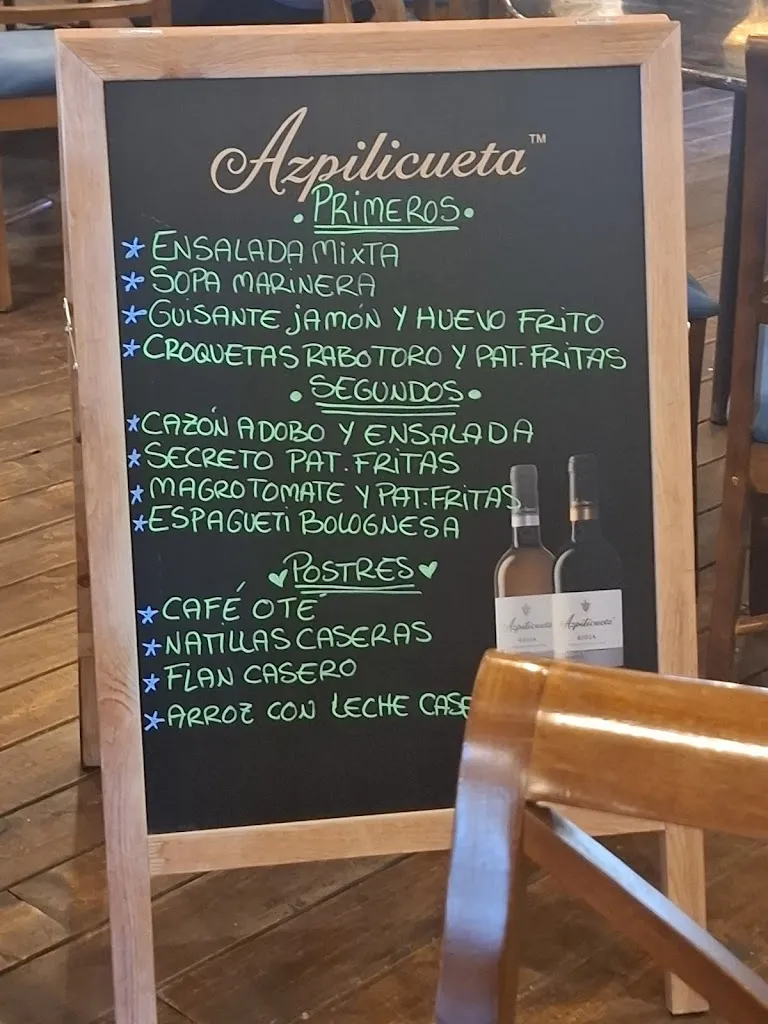 Azpilicueta™
• PRIMEROS •
* ENSALADA MIXTA
* SOPA MARINERA
* GUISANTE JAMÓN Y HUEVO FRITO
* CROQUETAS RABO TORO Y PAT. FRITAS
• SEGUNDOS •
* CAZÓN ADOBO Y ENSALADA
* SECRETO PAT. FRITAS
* MAGRO TOMATE Y PAT. FRITAS
* ESPAGUETI BOLOGNESA
♥ POSTRES ♥
* CAFÉ O TÉ
* NATILLAS CASERAS
* FLAN CASERO
* ARROZ CON LECHE CASE
Azpilicueta Azpilicueta
RIOJA RIOJA